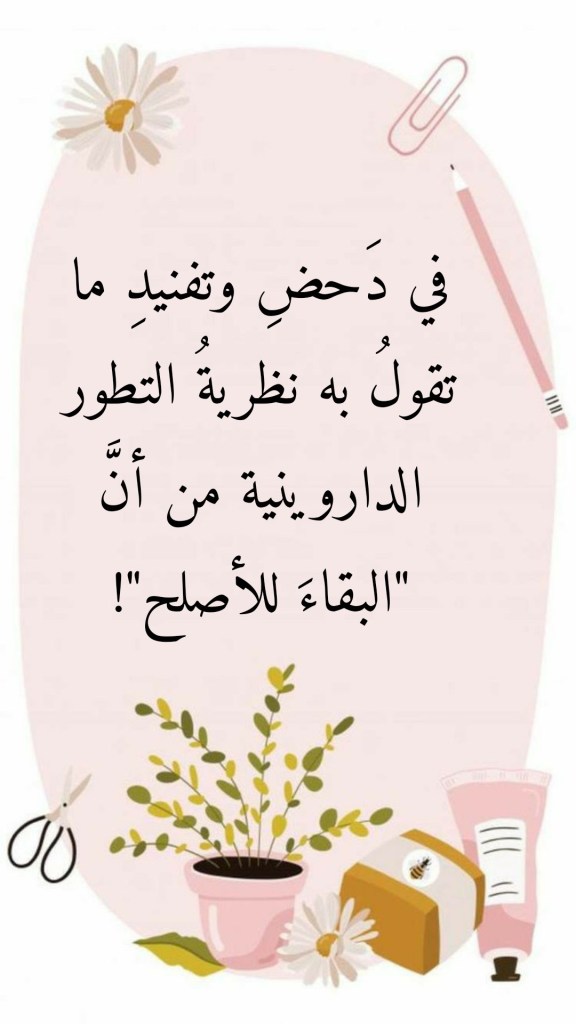 في دَحضِ وتفنيدِ ما
تقولُ به نظريةُ التطور
الداروينية من أنَّ
"البقاءَ للأصلح"!